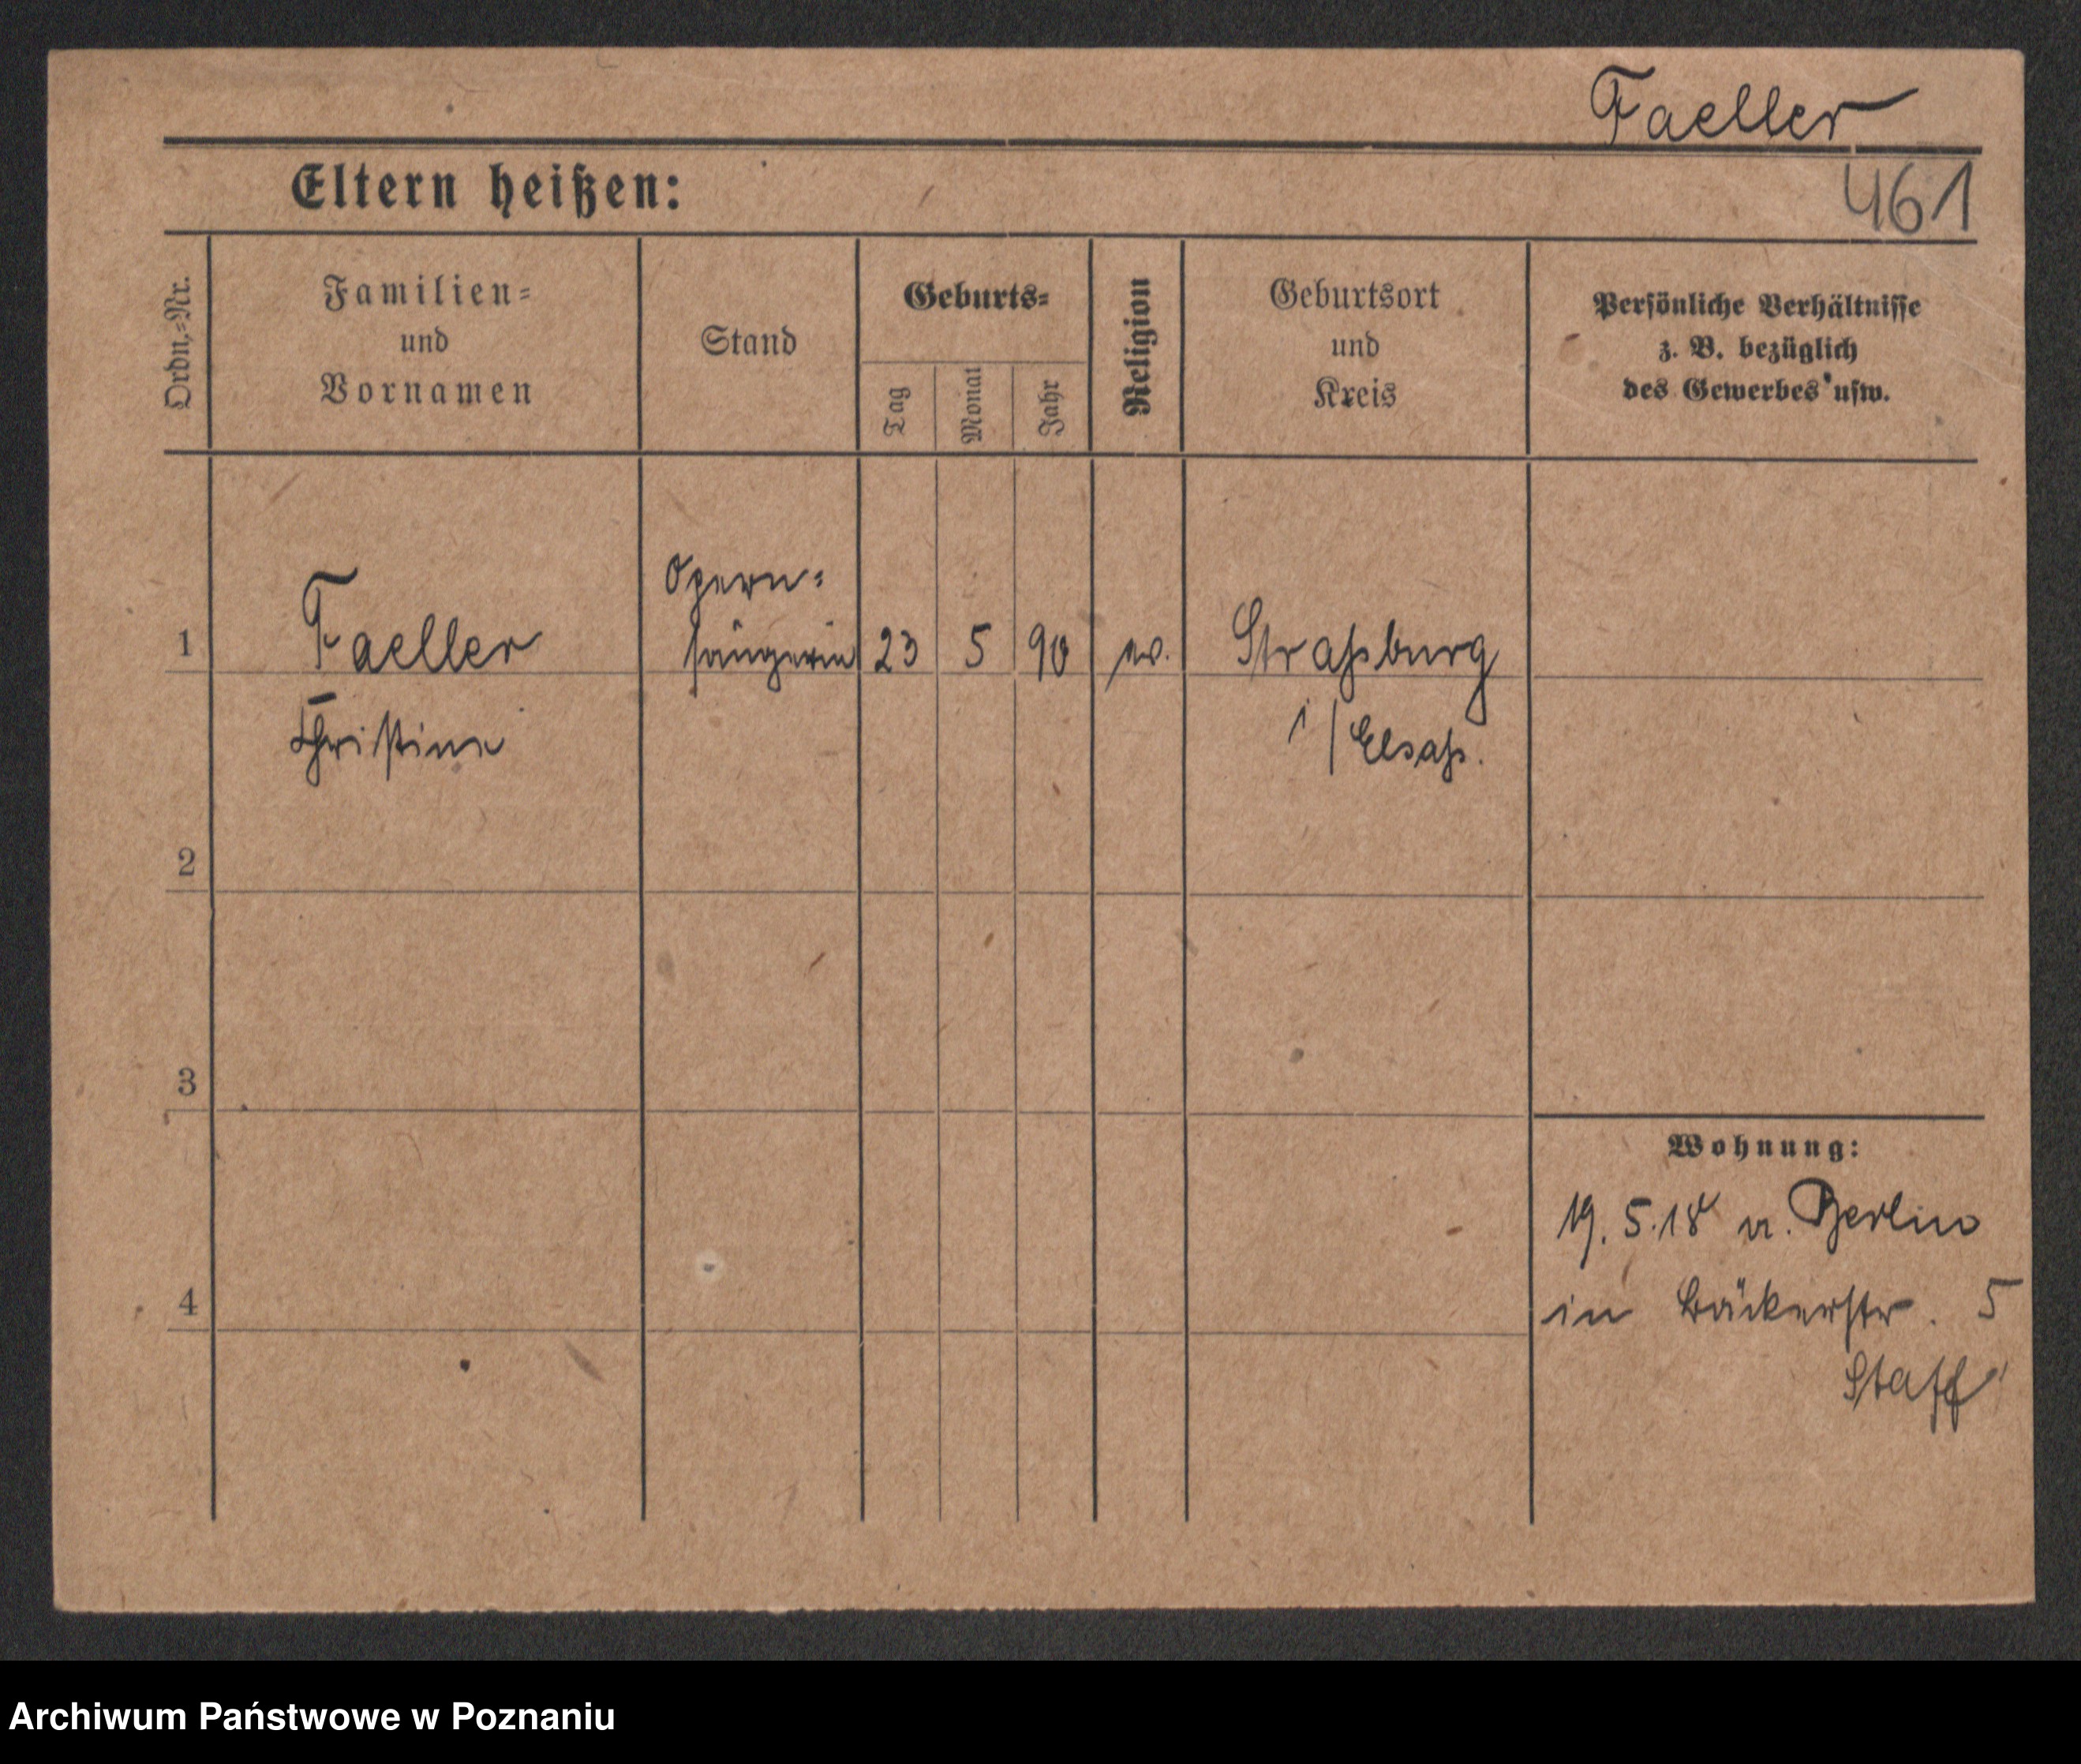 Faeller
Eltern heißen:
461
Ordn.-Nr.
Familien-
und
Vornamen
Stand
Geburts-
Tag
Monat
Jahr
Religion
Geburtsort
und
Kreis
Persönliche Verhältnisse
z. B. bezüglich
des Gewerbes usw.
1
Faeller
Opern-
sängerin
23
5
90
ev.
Straßburg
Christine
i/Elsaß.
2
3
Wohnung:
19.5.18 v. Berlin
in Bäckerstr. 5
4
Staff
Archiwum Państwowe w Poznaniu